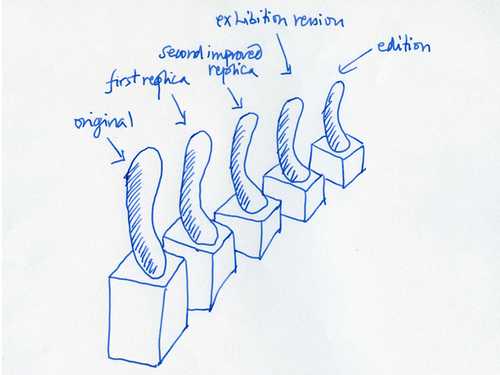 original
first replica
second improved
replica
exhibition version
edition